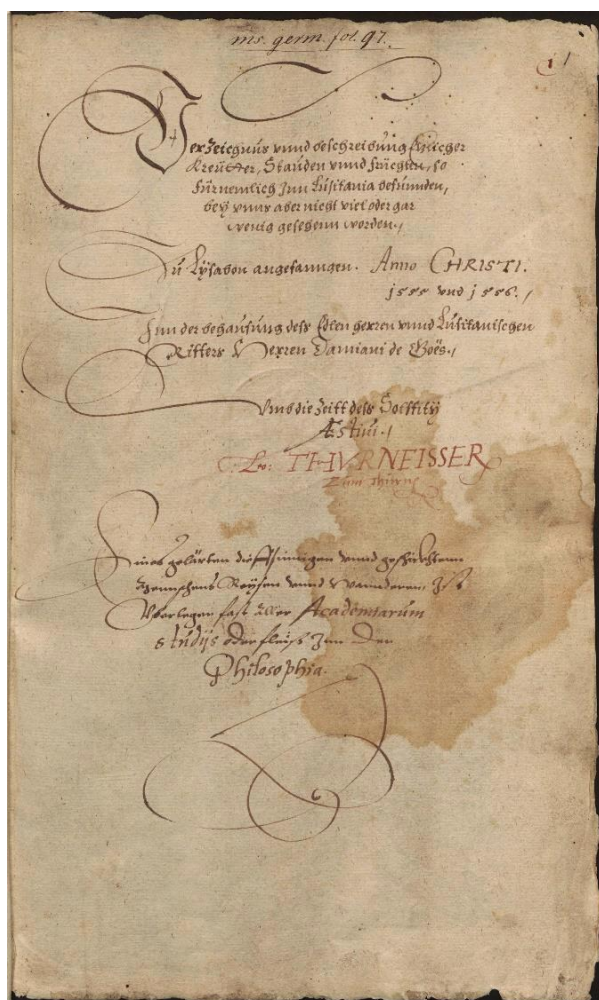 ms. germ. fol. 97.
1
Verzeichnus vnnd beschreibung Ettlicher
Kreütter, Stauden vnnd früchten, so
fürnemlich Inn Lusitania befunnden,
bey vnns aber nicht viel oder gar
wenig gesehenn worden./
Zu Lysabon angefanngen. Anno CHRISTI.
1555 vnd 1556./
Inn der behausung dess Edlen herren vnnd Lusitanischen
Ritters Herren Damiani de Goës./
Vmb die Zeitt dess Solstity
Æstiui./
Leo: THVRNEISSER
Zum thurn
Eines gelärten dieffsinnigen vnnd geschickhtenn
Mennschens Reysen vnnd Wannderen, Ist
Vberlegen fast aller Academiarum
studijs oder fleiss Inn der
Philosophia.